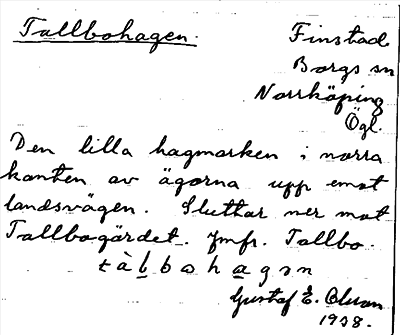 Tallbohagen.
Finstad
Borgs sn
Norrköping
Ögl.
Den lilla hagmarken i norra
kanten av ägorna upp emot
landsvägen. Sluttar ner mot
Tallbogärdet. Jmfr. Tallbo.
tàlbohagən
Gustaf E. Olsson
1938.